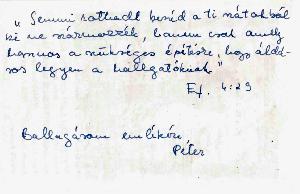 „Semmi rothadt beszéd a ti szátokból
ki ne származzék, hanem csak amely
hasznos a szükséges építésre, hogy áldá-
sos legyen a hallgatóknak"
Ef. 4:29
Ballagásom emlékére
Péter